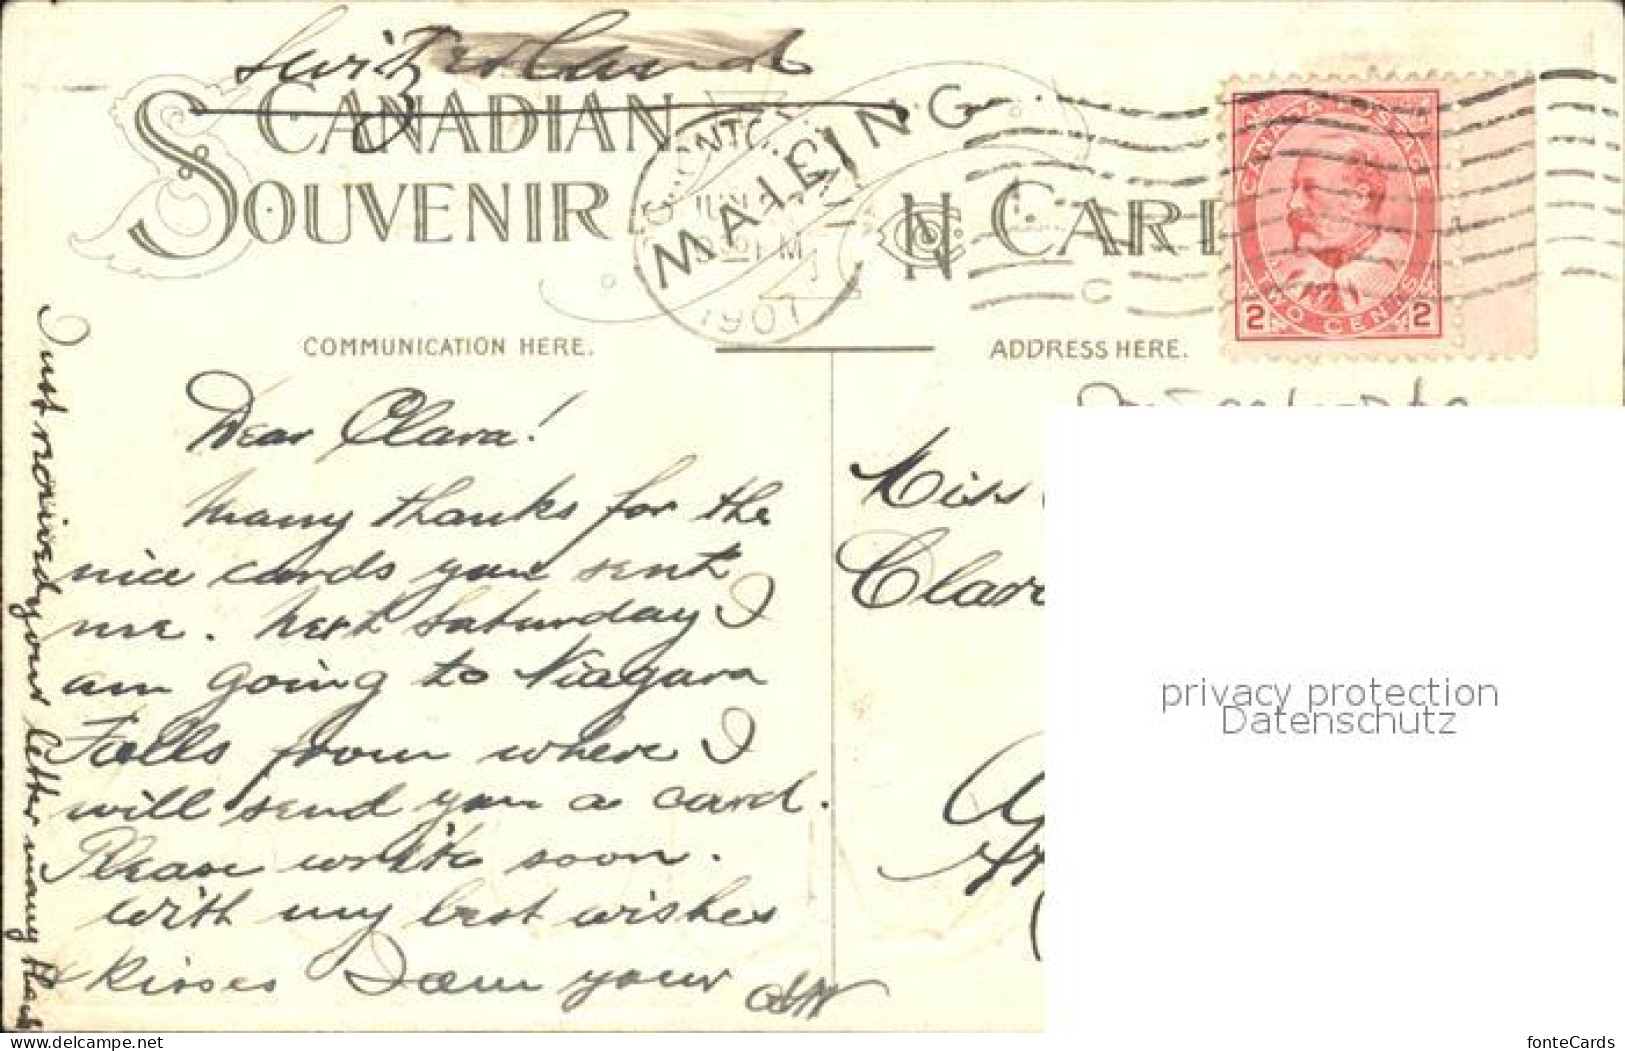 Switzerland
CANADIAN
SOUVENIR
MAILING
CARD
TORONTO
1907
CANADA POSTAGE
2 TWO CENTS 2
COMMUNICATION HERE.
ADDRESS HERE.
Dear Clara!
Many thanks for the
nice cards you sent
me. Next Saturday I
am going to Niagara
Falls from where I
will send you a card.
Please write soon.
With my best wishes
& kisses I am your
Just received your letter many
Miss
Clar
privacy protection
Datenschutz
www.delcampe.net
fonteCards